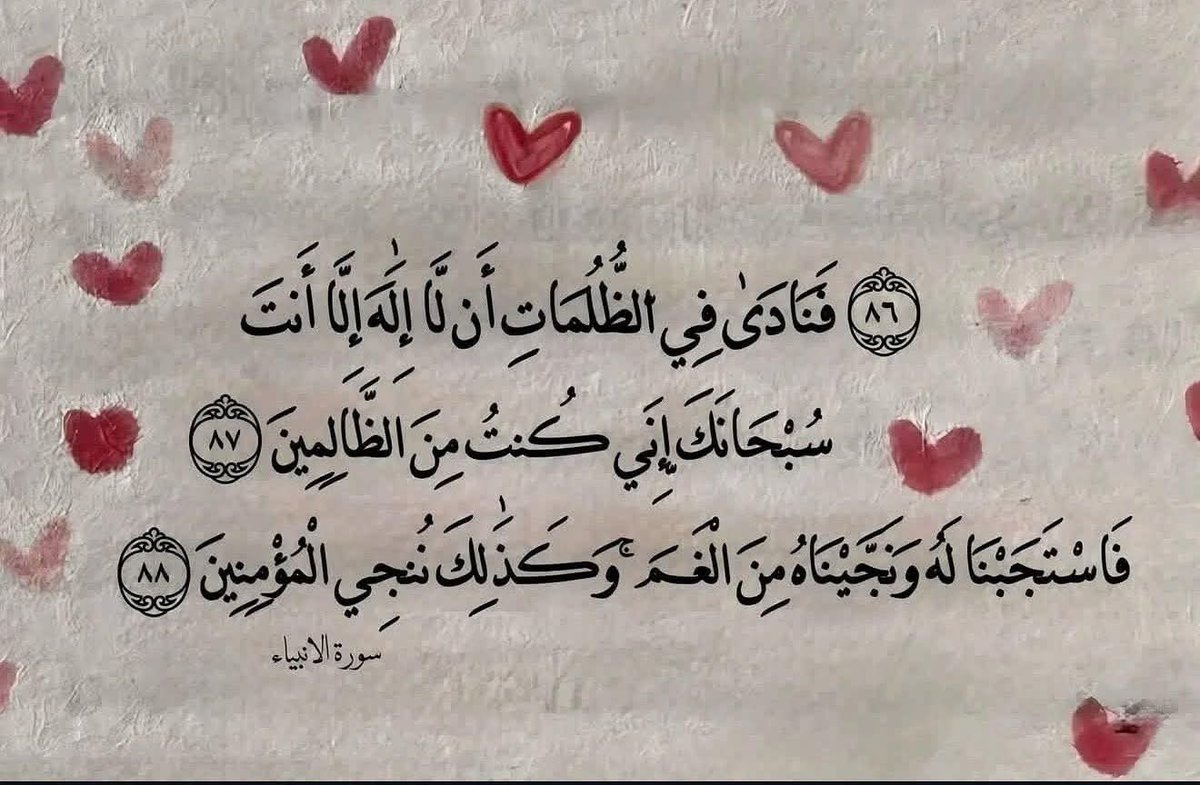 ﴿٨٦﴾ فَنَادَىٰ فِي الظُّلُمَاتِ أَن لَّا إِلَٰهَ إِلَّا أَنتَ
سُبْحَانَكَ إِنِّي كُنتُ مِنَ الظَّالِمِينَ ﴿٨٧﴾
فَاسْتَجَبْنَا لَهُ وَنَجَّيْنَاهُ مِنَ الْغَمِّ ۚ وَكَذَٰلِكَ نُنجِي الْمُؤْمِنِينَ ﴿٨٨﴾
سورة الانبياء